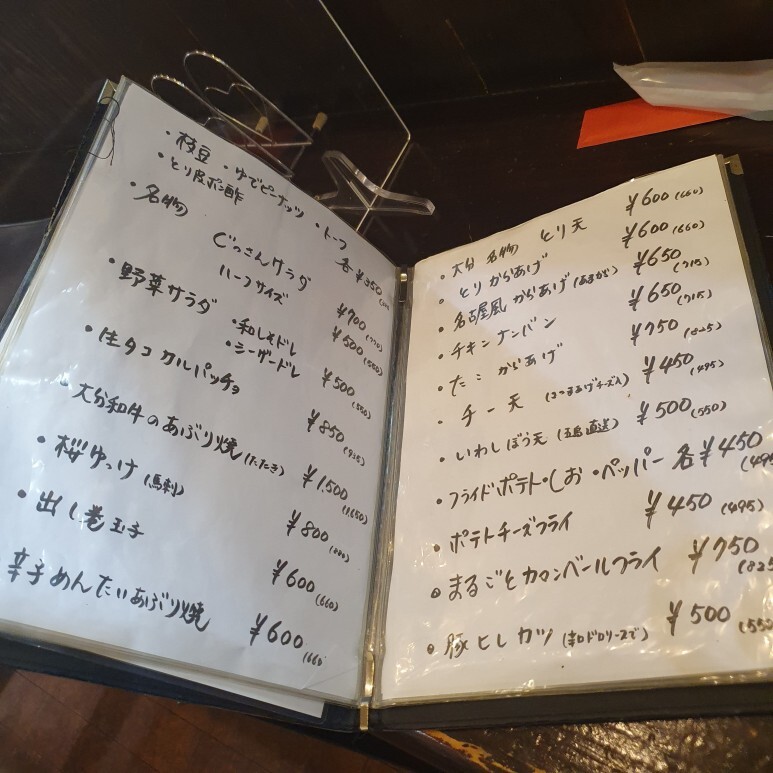 ・枝豆 ・ゆでピーナッツ ・トーフ
・とり皮ポン酢 各¥350
・名物 ぐっさんサラダ ¥700 (770)
ハーフサイズ ¥500 (550)
・野菜サラダ ・和しそドレ ・シーザードレ ¥500 (550)
・生タコカルパッチョ ¥850 (935)
・大分和牛のあぶり焼(たたき) ¥1,500 (1,650)
・桜ゆっけ(馬刺) ¥800 (880)
・出し巻玉子 ¥600 (660)
辛子めんたいあぶり焼 ¥600 (660)
・大分名物 とり天 ¥600 (660)
・とりからあげ ¥600 (660)
・名古屋風からあげ ¥650 (715)
・チキンナンバン ¥650 (715)
・たこからあげ ¥750 (825)
・チー天 ¥450 (495)
・いわしぼう天 (五島直送) ¥500 (550)
・フライドポテト・しお・ペッパー 各¥450 (495
・ポテトチーズフライ ¥450 (495)
・まるごとカマンベールフライ ¥750 (825
・豚ヒレカツ (辛口ドロソースで) ¥500 (550